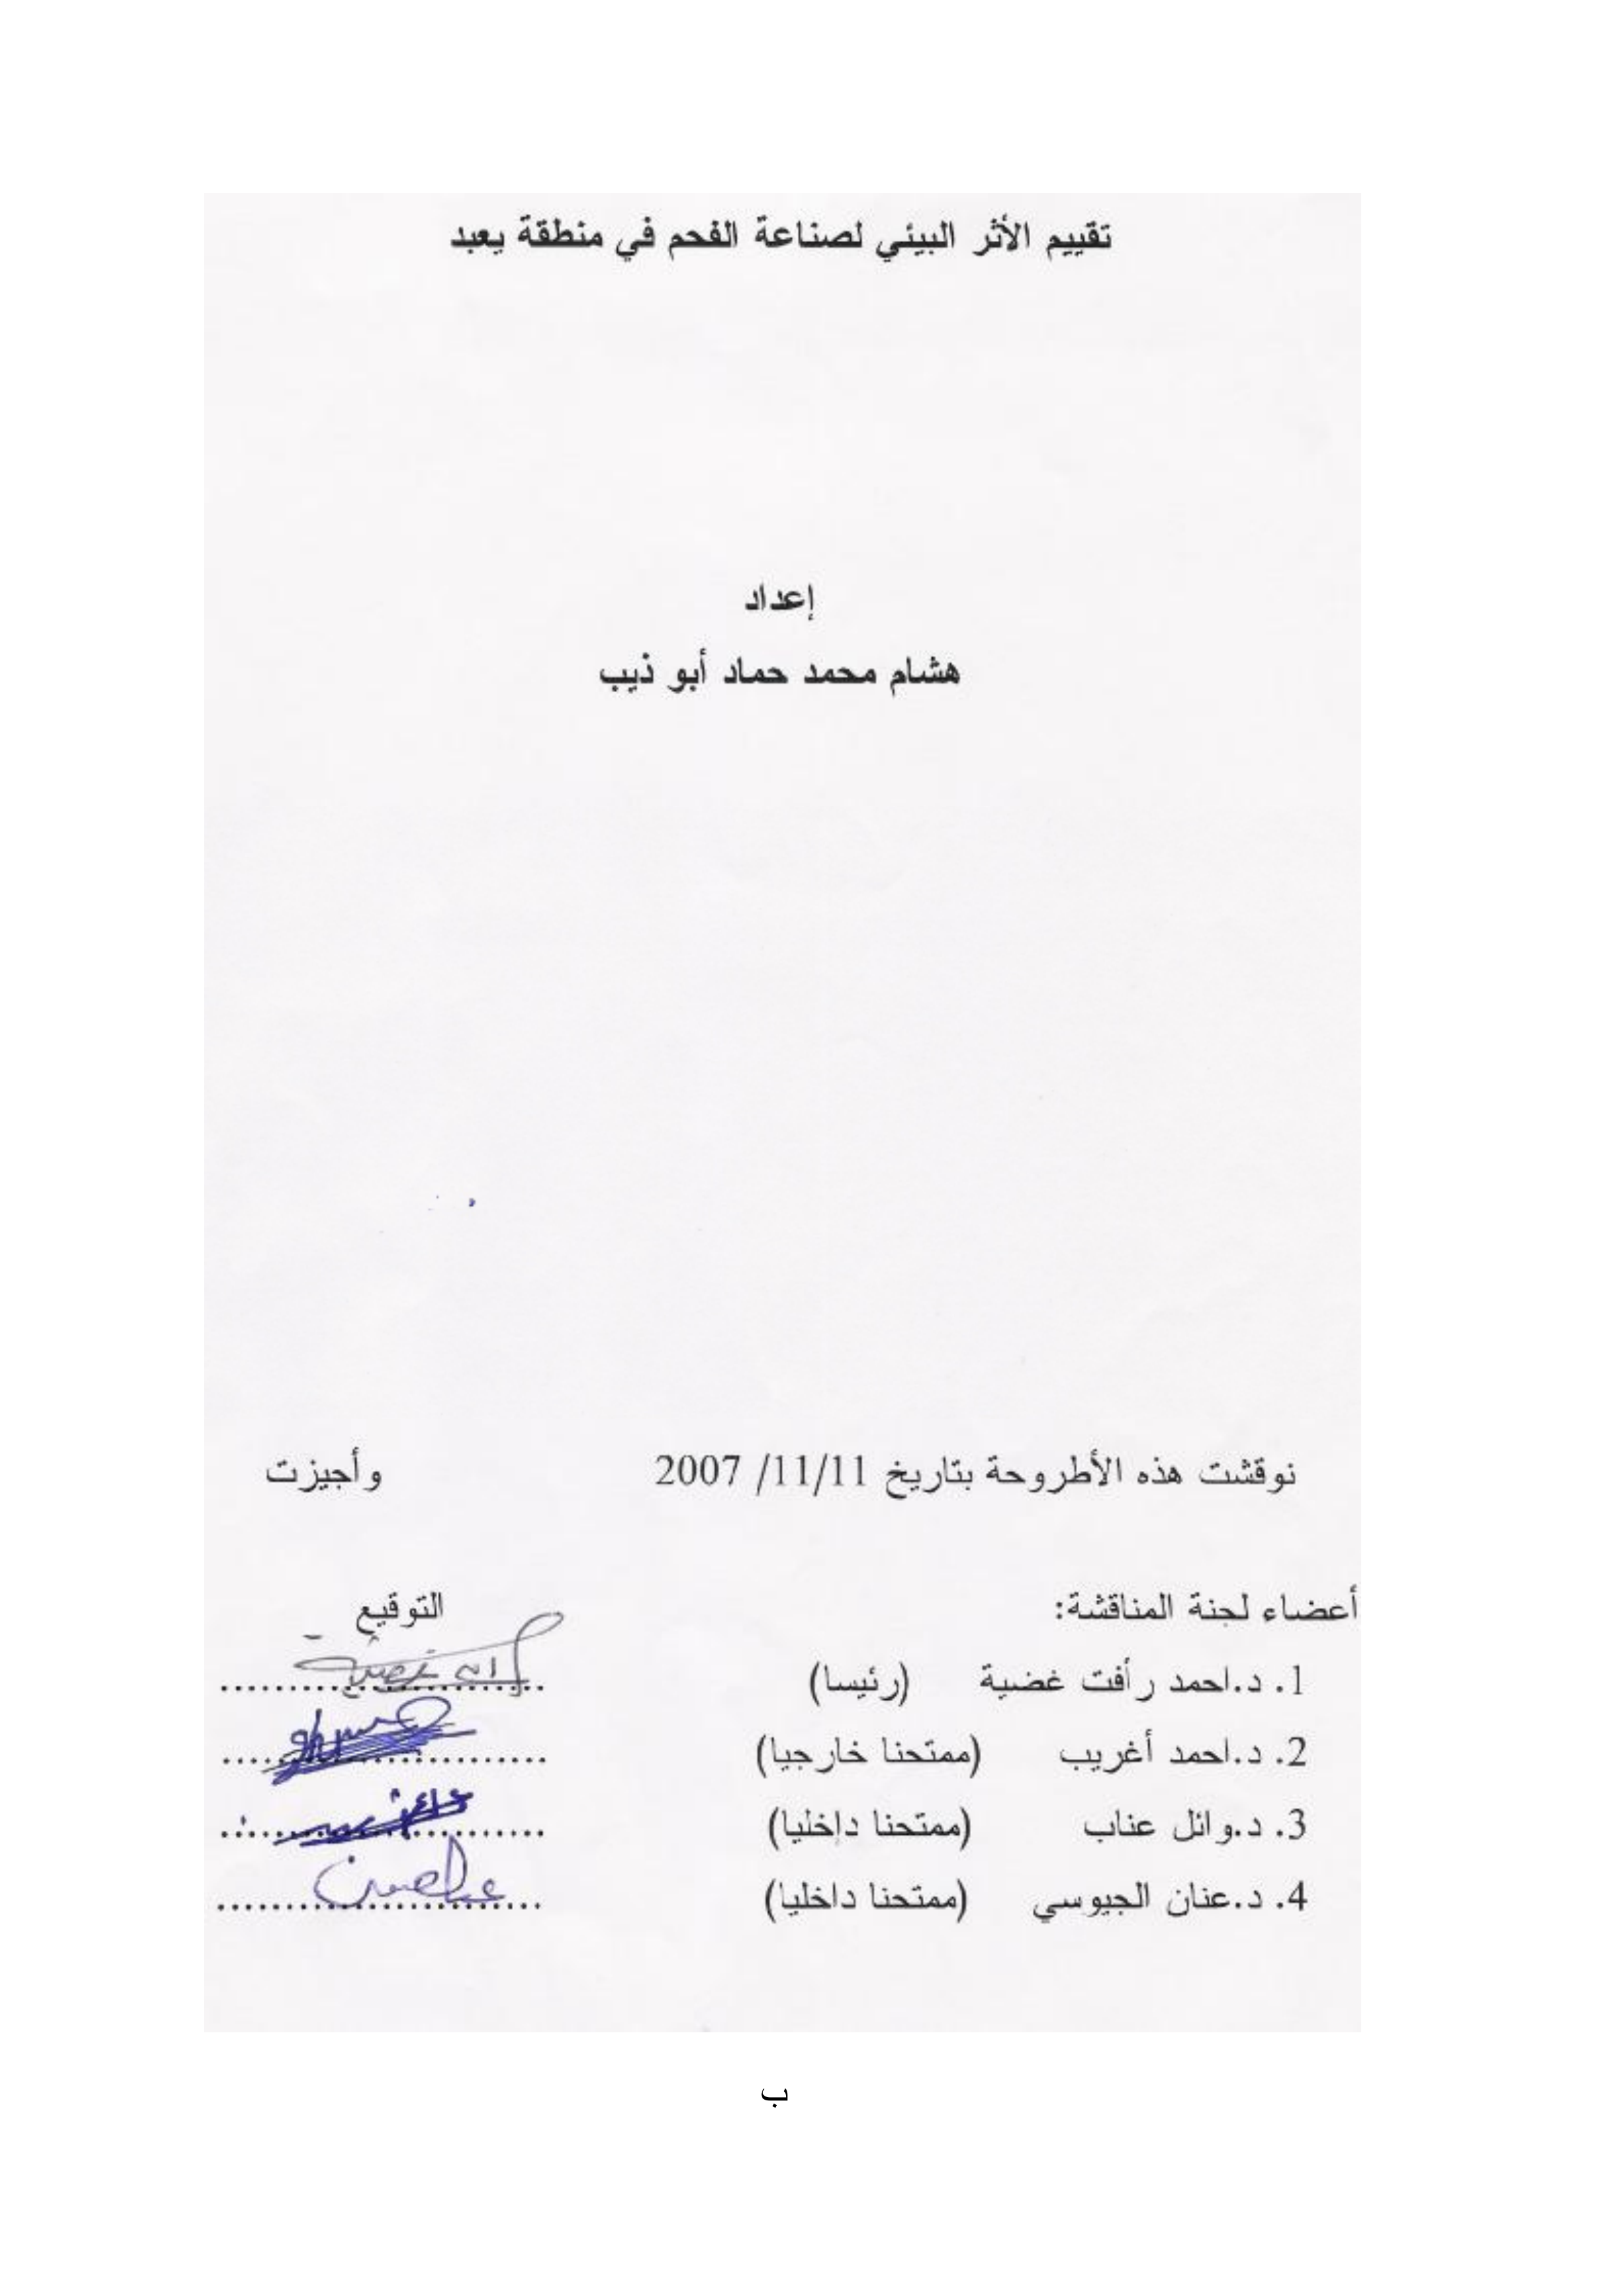 تقييم الأثر البيئي لصناعة الفحم في منطقة يعبد
إعداد
هشام محمد حماد أبو ذيب
نوقشت هذه الأطروحة بتاريخ 11/11/ 2007 وأجيزت
أعضاء لجنة المناقشة: التوقيع
1. د.احمد رأفت غضية (رئيسا) ........................
2. د.احمد أغريب (ممتحنا خارجيا) ........................
3. د.وائل عناب (ممتحنا داخليا) ........................
4. د.عنان الجيوسي (ممتحنا داخليا) ........................
ب